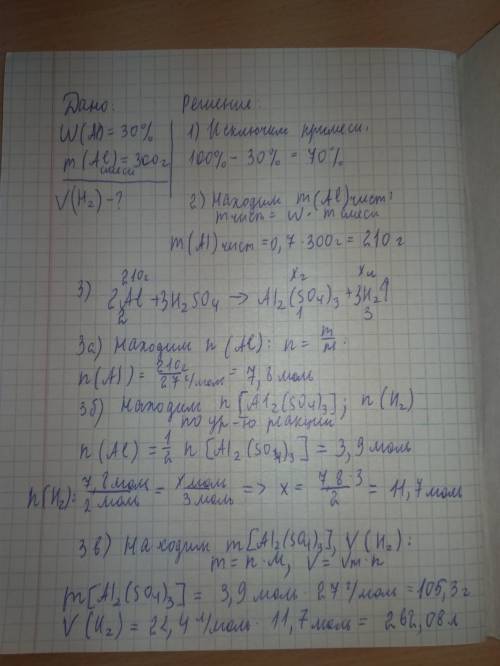 Дано:
Решение:
W(Al)=30%
1) Исключим примеси.
m(Al) смеси = 300г
100% - 30% = 70%
V(H₂) - ?
2) Находим m(Al) чист:
m чист = W · m смеси
m(Al) чист = 0,7 · 300г = 210 г
210г xг xл
3) 2Al + 3H₂SO₄ → Al₂(SO₄)₃ + 3H₂↑
2 1 3
3а) Находим n(Al): n = m/M.
n(Al) = 210г / 27 г/моль = 7,8 моль
3б) Находим n[Al₂(SO₄)₃]; n(H₂)
по ур-ю реакции
n(Al) = 1/2 n[Al₂(SO₄)₃] = 3,9 моль
n(H₂): 7,8 моль / 2 моль = x моль / 3 моль => x = 7,8 · 3 / 2 = 11,7 моль
3в) Находим m[Al₂(SO₄)₃], V(H₂):
m = n · M, V = Vm · n
m[Al₂(SO₄)₃] = 3,9 моль · 27 г/моль = 105,3 г
V(H₂) = 22,4 л/моль · 11,7 моль = 262,08 л